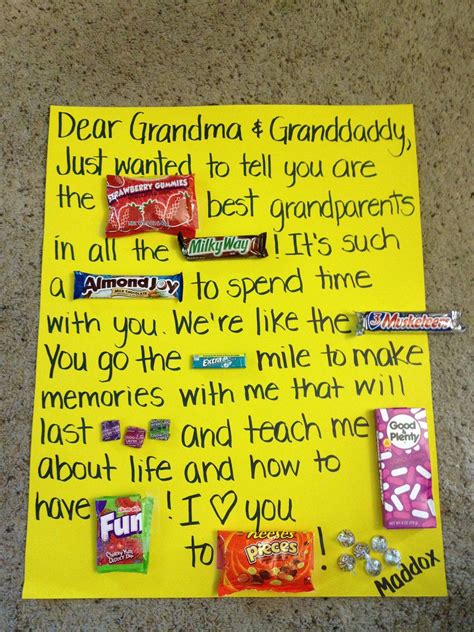 Dear Grandma & Granddaddy,
Just wanted to tell you are
the STRAWBERRY GUMMIES best grandparents
in all the MilkyWay ! It's such
a Almond Joy MILK CHOCOLATE to spend time
with you. We're like the 3 Musketeers
You go the EXTRA mile to make
memories with me that will
last and teach me
Good & Plenty
about life and how to
have Fun ! I ♡ you
to REESE'S PIECES !
Maddox